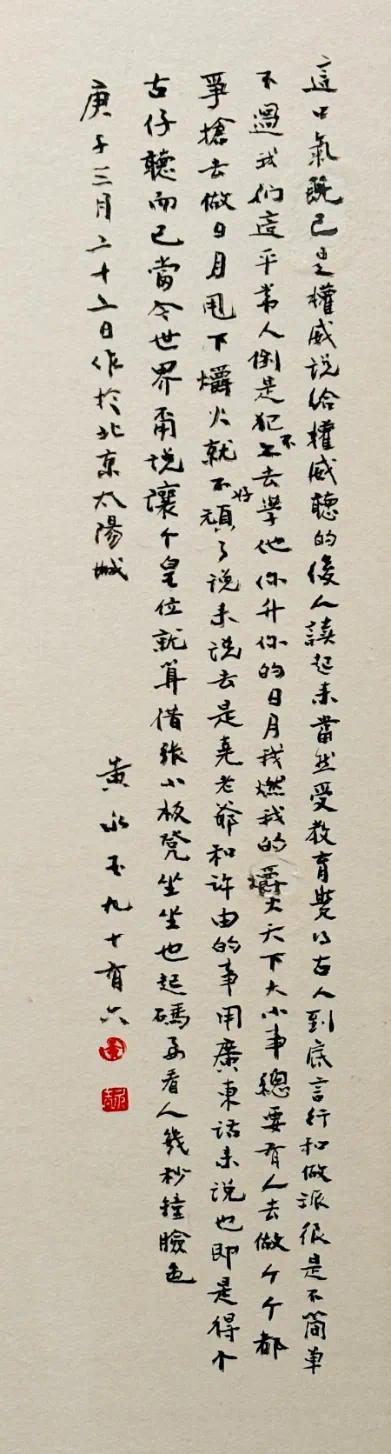 這口氣既已是權威说给權威聽的後人讀起来當然受教育覺得古人到底言行和做派很是不簡单
不過我们這平常人倒是犯不上去學他你升你的日月我燃我的爝火天下大小事總要有人去做个个都
爭搶去做日月甩下爝火就不好頑了说来说去是堯老爺和许由的事用廣東話来说也即是得个
古仔聽而已當今世界甭说讓个皇位就算借張小板凳坐坐也起碼要看人幾秒鐘臉色
庚子三月二十二日作於北京太陽城
黄永玉九十有六